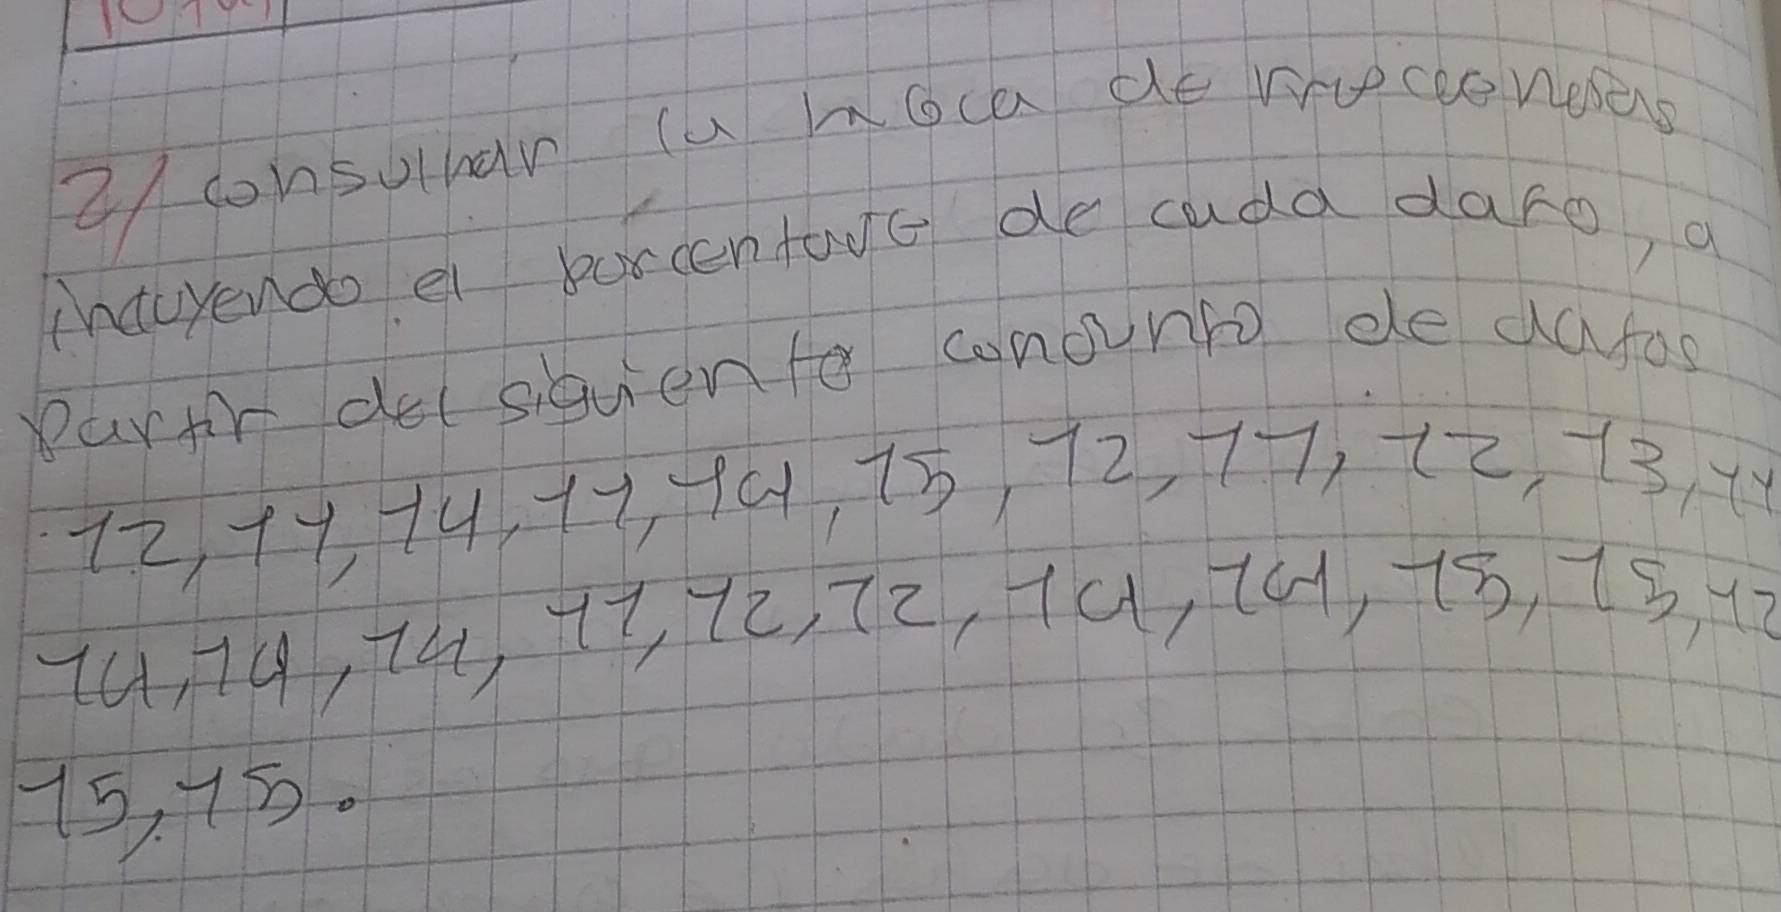 2) consultar la taca de frecuencias
incluyendo el porcentaje de cada dato, a
partir del siguiente conjunto de datos
12, 11, 14, 11, 14, 15, 12, 11, 12, 13, 11
14, 14, 14, 11, 12, 12, 14, 14, 15, 15, 12
15, 15.